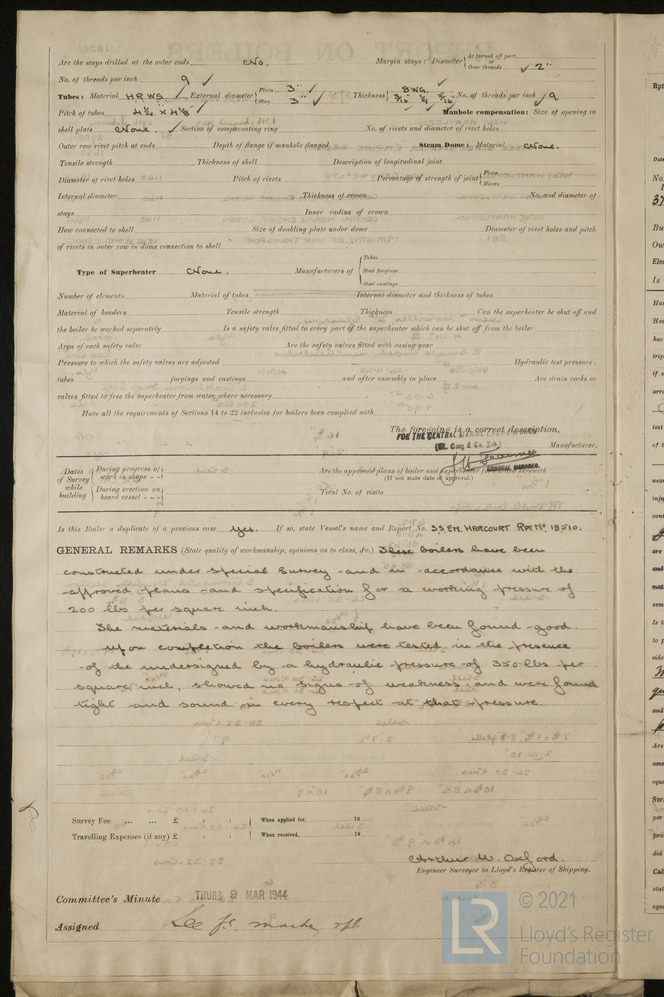 Are the stays drilled at the outer ends No. Margin stays: Diameter { At turned off part, or Over threads ✓ 2"
No. of threads per inch 9 ✓
Tubes: Material H.R.W.S. External diameter { Plain 3" ✓ Stay 3" ✓ Thickness { 8 WG. 3/16 1/4 5/16 No. of threads per inch ✓ 9
Pitch of tubes 4 1/4 × 4 1/8 Manhole compensation: Size of opening in
shell plate None. Section of compensating ring No. of rivets and diameter of rivet holes
Outer row rivet pitch at ends Depth of flange if manhole flanged. Steam Dome: Material None.
Tensile strength Thickness of shell Description of longitudinal joint
Diameter of rivet holes Pitch of rivets Percentage of strength of joint { Plate Rivets
Internal diameter Thickness of crown No. and diameter of
stays Inner radius of crown
How connected to shell Size of doubling plate under dome Diameter of rivet holes and pitch
of rivets in outer row in dome connection to shell
Type of Superheater None. Manufacturers of { Tubes Steel forgings Steel castings
Number of elements Material of tubes Internal diameter and thickness of tubes
Material of headers Tensile strength Thickness Can the superheater be shut off and
the boiler be worked separately Is a safety valve fitted to every part of the superheater which can be shut off from the boiler
Area of each safety valve Are the safety valves fitted with easing gear
Pressure to which the safety valves are adjusted Hydraulic test pressure:
tubes forgings and castings and after assembly in place Are drain cocks or
valves fitted to free the superheater from water where necessary
Have all the requirements of Sections 14 to 22 inclusive for boilers been complied with
The foregoing is a correct description,
FOR THE CENTRAL MARINE
Manufacturer.
GENERAL MANAGER
Dates of Survey while building { During progress of work in shops - - During erection on board vessel - - -
Are the approved plans of boiler and superheater forwarded herewith
(If not state date of approval.)
Total No. of visits
Is this Boiler a duplicate of a previous case Yes. If so, state Vessel's name and Report No. SS EM. HARCOURT Rpt No 18510.
GENERAL REMARKS (State quality of workmanship, opinions as to class, &c.) These boilers have been
constructed under special survey and in accordance with the
approved plans and specification for a working pressure of
200 lbs per square inch.
The materials and workmanship have been found good.
Upon completion the boilers were tested in the presence
of the undersigned by a hydraulic pressure of 350 lbs per
square inch, showed no signs of weakness and were found
tight and sound in every respect at that pressure.
Survey Fee ... ... £ : : When applied for, 19
Travelling Expenses (if any) £ : : When received, 19
Arthur W. Oxford.
Engineer Surveyor to Lloyd's Register of Shipping.
Committee's Minute THURS 9 MAR 1944
Assigned See F.E. machy rpt
© 2021
LR Lloyd's Register
Foundation